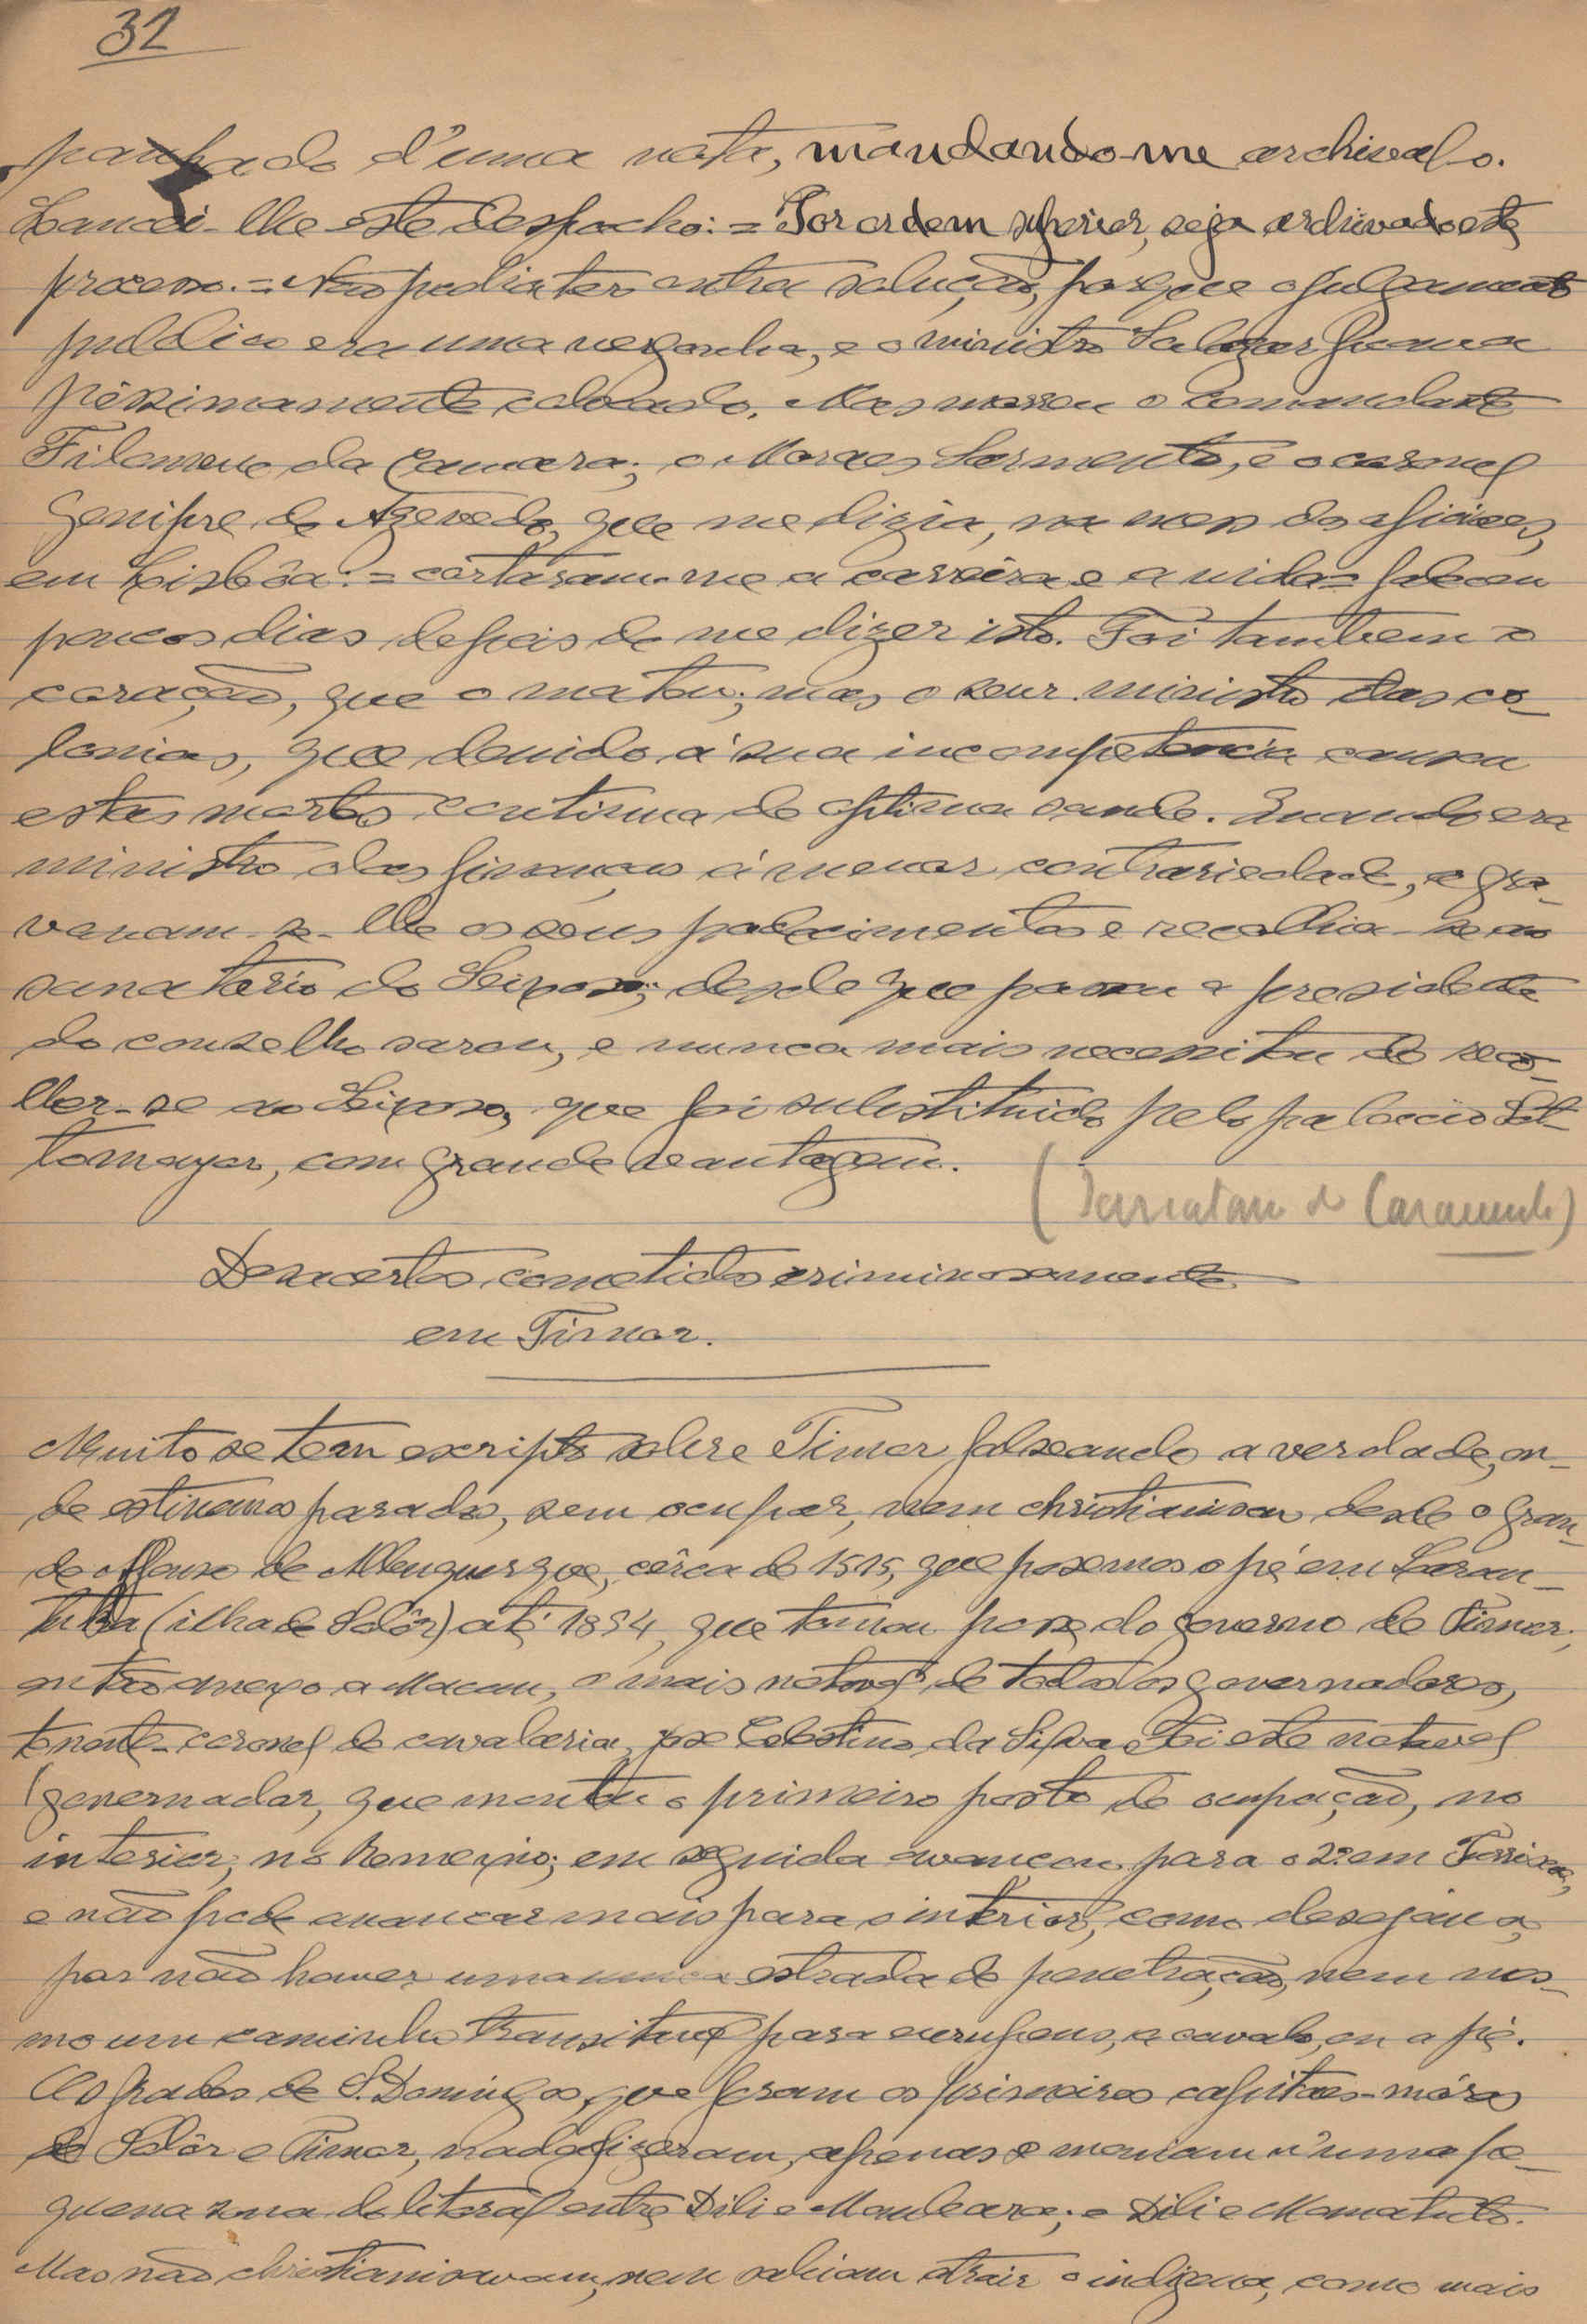 32
panhado d'uma nota, mandando-me archival-o.
Lancei-lhe este despacho: = Por ordem superior, seja archivado este
processo. = Não podia ter outra solução, porque o julgamento
publico era uma vergonha, e o ministro Salazar ficava
péssimamente colocado. Mas morreu o comandante
Filomeno da Camara; o Moraes Sarmento, e o coronel
Genipre de Azevedo, que me dizia, na mesa dos oficiaes,
em Lisbôa: = cortaram-me a carreira e a vida = faleceu
poucos dias depois de me dizer isto. Foi tambem o
coração, que o matou; mas o seur. ministro das co-
lonias, que devido á sua incompetencia causou
estas mortes continua de optima saude. Quando era
ministro das finanças á menor contrariedade, agra-
vavam-se-lhe os seus padecimentos e recolhia-se ao
sanatório do Seixoso; desde que passou a presidente
do conselho sarou, e nunca mais necessitou de reco-
lher-se ao Seixoso, que foi substituido pelo palacio Sot-
tomayor, com grande vantagem.
de
Desacertos cometidos criminosamente
em Timor.
Muito se tem escripto sobre Timor falseando a verdade, on-
de estivemos parados, sem ocupar, nem christianisar desde o gran-
de Afonso de Albuquerque, cêrca de 1515, que posemos o pé em Laran-
tuka (ilha de Solôr) até 1894, que tomou posse do governo de Timor,
então anexo a Macau, o mais notavel de todos os governadores,
tenente-coronel de cavalaria, José Celestino da Silva. Foi este notavel
governador, que montou o primeiro posto de ocupação, no
interior, no Remexio; em seguida avançou para o 2º em
e não pode avançar mais para o interior, como desejava,
por não haver uma unica estrada de penetração, nem mes-
mo um caminho transitavel para europeus, a cavalo, ou a pé.
Os frades de S. Domingos, que foram os primeiros capitães-móres
de Solôr e Timor, nada fizeram, apenas se moviam n'uma pe-
quena zona do litoral entre Dili e Maubara; e Dili e Manatuto.
Mas não christianisavam, nem sabiam atrair o indigena, como mais